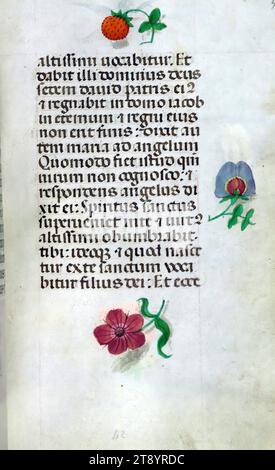 altissimi vocabitur. Et
dabit illi dominus deus
sedem david patris ei9
& regnabit in domo iacob
in eternum & regni eius
non erit finis: dixit au
tem maria ad angelum
Quomodo fiet istud qm
virum non cognosco: &
respondens angelus di
xit ei: Spiritus sanctus
superveniet in te & virt9
altissimi obumbrabit
tibi: ideoq; & quod nasce
tur ex te sanctum voca
bitur filius dei: Et ecce
42
alamy
Image ID: 2T8YRDC
www.alamy.com